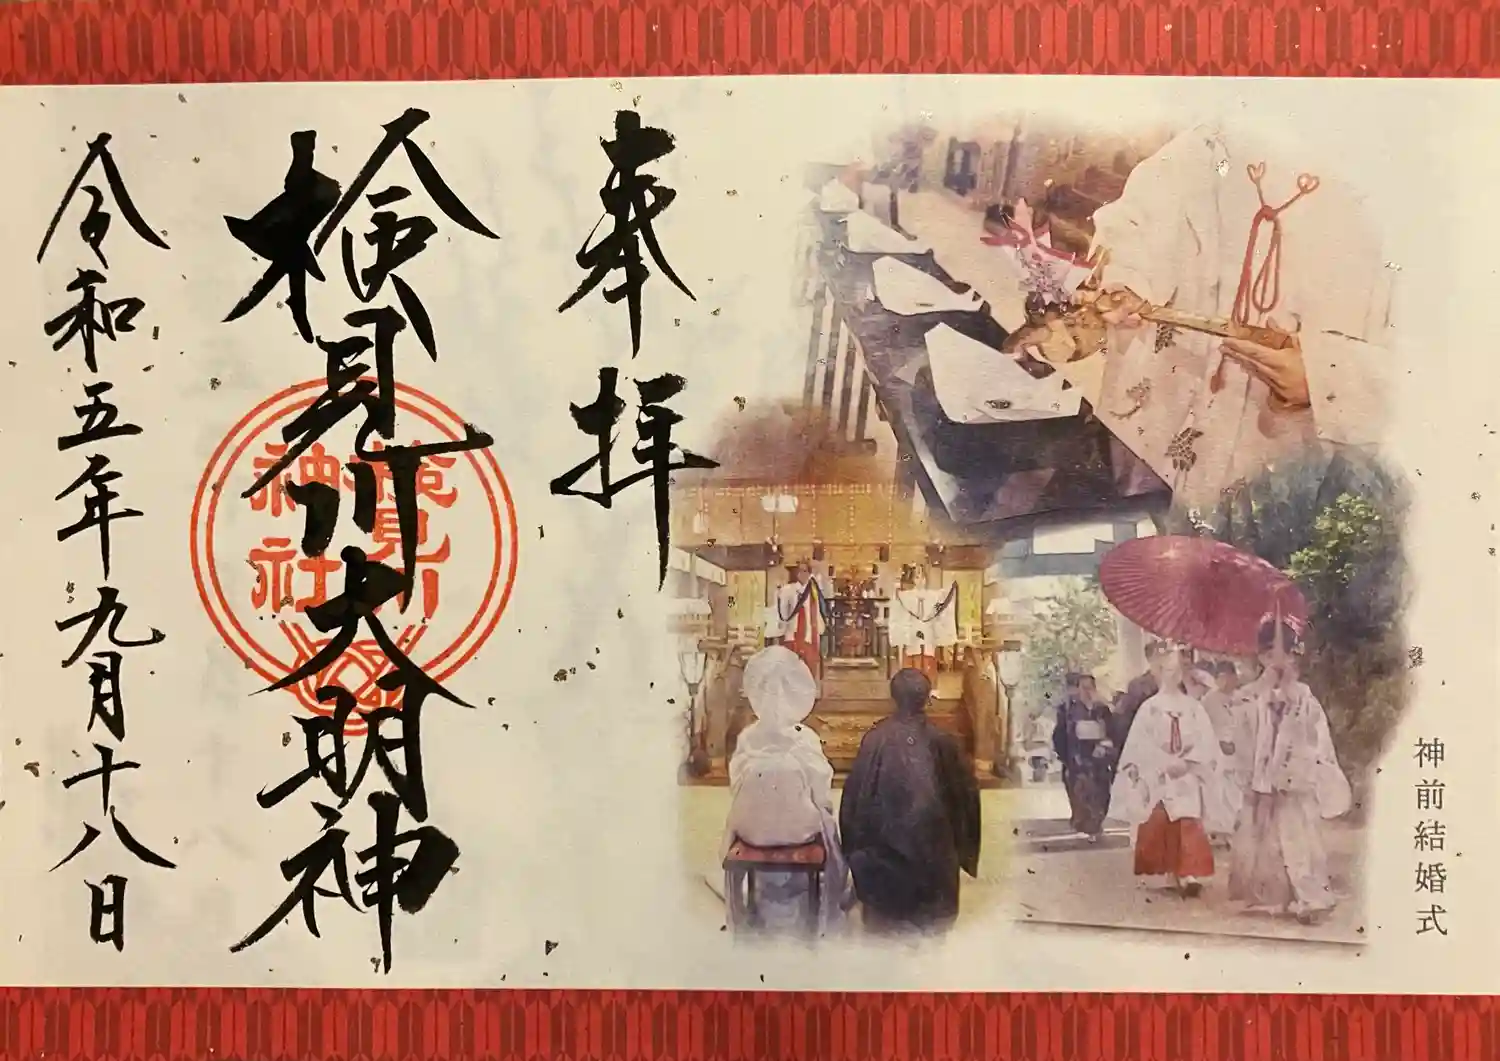 神前結婚式
奉拝
検見川大明神
検見川
神社
令和五年九月十八日